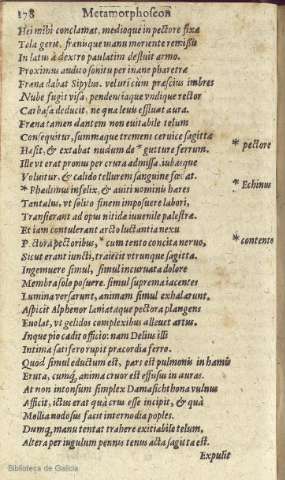 178 Metamorphoseon
Hei mihi conclamat, medioque in pectore fixa
Tela gerit, frænisque manu moriente remissis
In latus à dextro paulatim defluit armo.
Proximus audito sonitu per inane pharetræ
Frena dabat Sipylus. veluti cùm præscius imbres
Nube fugit visa, pendentiaque vndique rector
Carbasa deducit, ne qua leuis effluat aura.
Frena tamen dantem non euitabile telum
Consequitur, summaque tremens ceruice sagitta
Hæsit, & extabat nudum de * gutture ferrum.
* pectore
Ille vt erat pronus per crura admissa, iubasque
Voluitur, & calido tellurem sanguine fœdat.
* Phædimus infelix, & auiti nominis hæres
* Echinus
Tantalus, vt solito finem imposuere labori,
Transierant ad opus nitidæ iuuenile palestræ.
Et iam contulerant arcto luctantia nexu
Pectora pectoribus, * cum tento concita neruo,
* contento
Sicut erant iuncti, traiecit vtrunque sagitta.
Ingemuere simul, simul incuruata dolore
Membra solo posuere. simul suprema iacentes
Lumina versarunt, animam simul exhalarunt.
Aspicit Alphenor laniataque pectora plangens
Euolat, vt gelidos complexibus alleuet artus.
Inque pio cadit officio: nam Delius illi
Intima fatifero rupit præcordia ferro.
Quod simul eductum est, pars est pulmonis in hamis
Eruta, cumq́, anima cruor est effusus in auras.
At non intonsum simplex Damasichthona vulnus
Afficit, ictus erat quà crus esse incipit, & quà
Mollia nodosus facit internodia poples.
Dumq́, manu tentat trahere exitiabile telum,
Altera per iugulum pennis tenus acta sagitta est.
Expulit
Biblioteca de Galicia